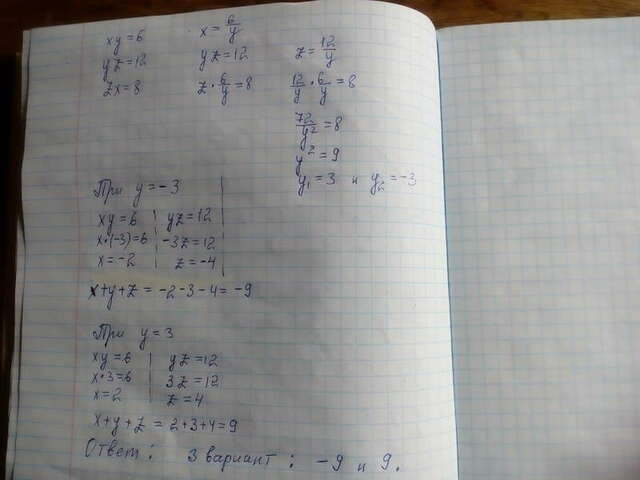 xy = 6    x = 6/y
yz = 12    yz = 12    z = 12/y
zx = 8    z · 6/y = 8    12/y · 6/y = 8
72/y² = 8
y² = 9
y₁ = 3 и y₂ = -3
При y = -3
xy = 6 | yz = 12
x·(-3) = 6 | -3z = 12
x = -2 | z = -4
x+y+z = -2-3-4 = -9
При y = 3
xy = 6 | yz = 12
x·3 = 6 | 3z = 12
x = 2 | z = 4
x+y+z = 2+3+4 = 9
Ответ: 3 вариант: -9 и 9.